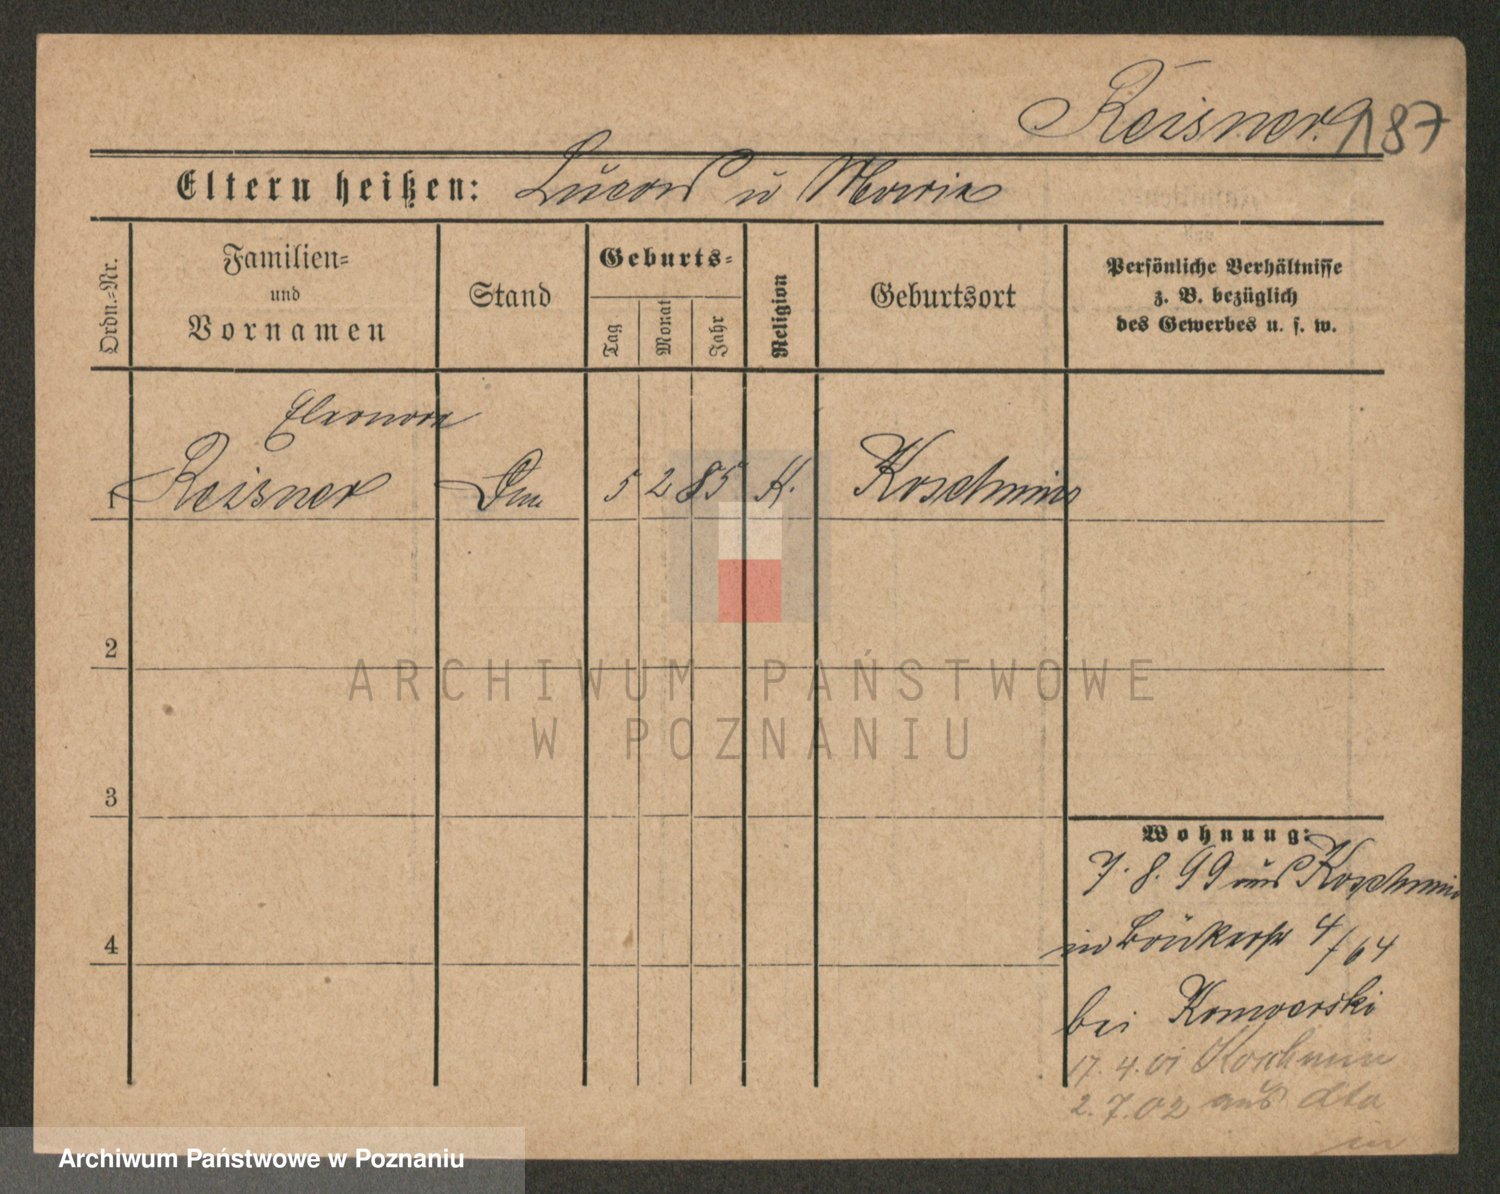 Reisner. 187
Eltern heißen: Lucas u Maria
Ordn.=Nr.
Familien=
und
Vornamen
Stand
Geburts=
Tag
Monat
Jahr
Religion
Geburtsort
Persönliche Verhältnisse
z. B. bezüglich
des Gewerbes u. s. w.
Eleonore
1 Reisner 5 2 85 K. Koschmin
2
3
4
Wohnung:
7. 8. 99 aus Koschmin
in 4/64
bei
17. 4. 01 Koschmin
2. 7. 02 aus dto
in
ARCHIWUM PAŃSTWOWE
W POZNANIU
Archiwum Państwowe w Poznaniu